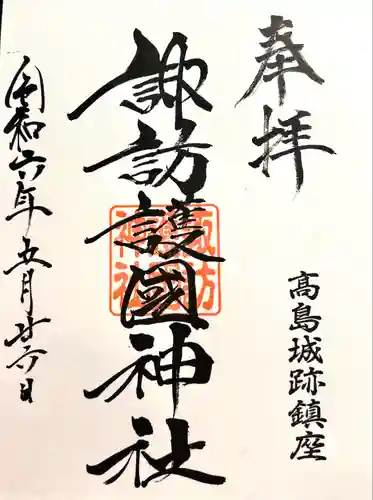 奉拝
高島城跡鎮座
諏訪護國神社
諏訪護國神社
令和六年五月廿六日